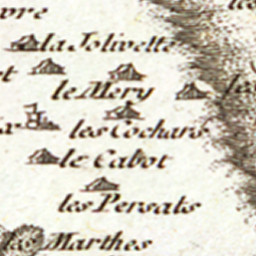 vre
la Jolivette
t
le Mery
les
x les Cochars
le Cabot
les Persats
les Marthes